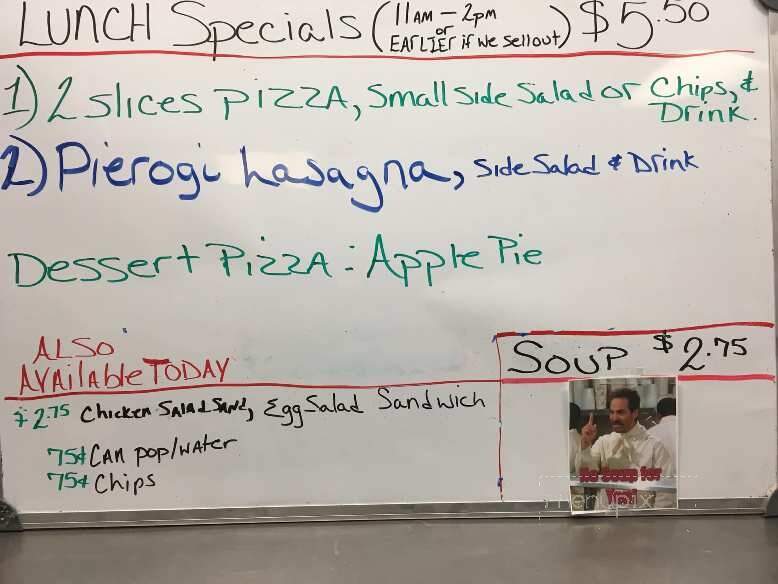 LUNCH Specials (11AM - 2pm or EARLIER if we sellout) $5.50
1) 2 slices PIZZA, Small side Salad or Chips, & Drink.
2) Pierogi Lasagna, Side Salad & Drink
Dessert PIZZA: Apple Pie
ALSO
AVAilable TODAY
$2.75 Chicken SALAD SAND, Egg Salad Sandwich
75¢ CAN pop/WATER
75¢ Chips
SOUP $2.75
No Soup for
You!